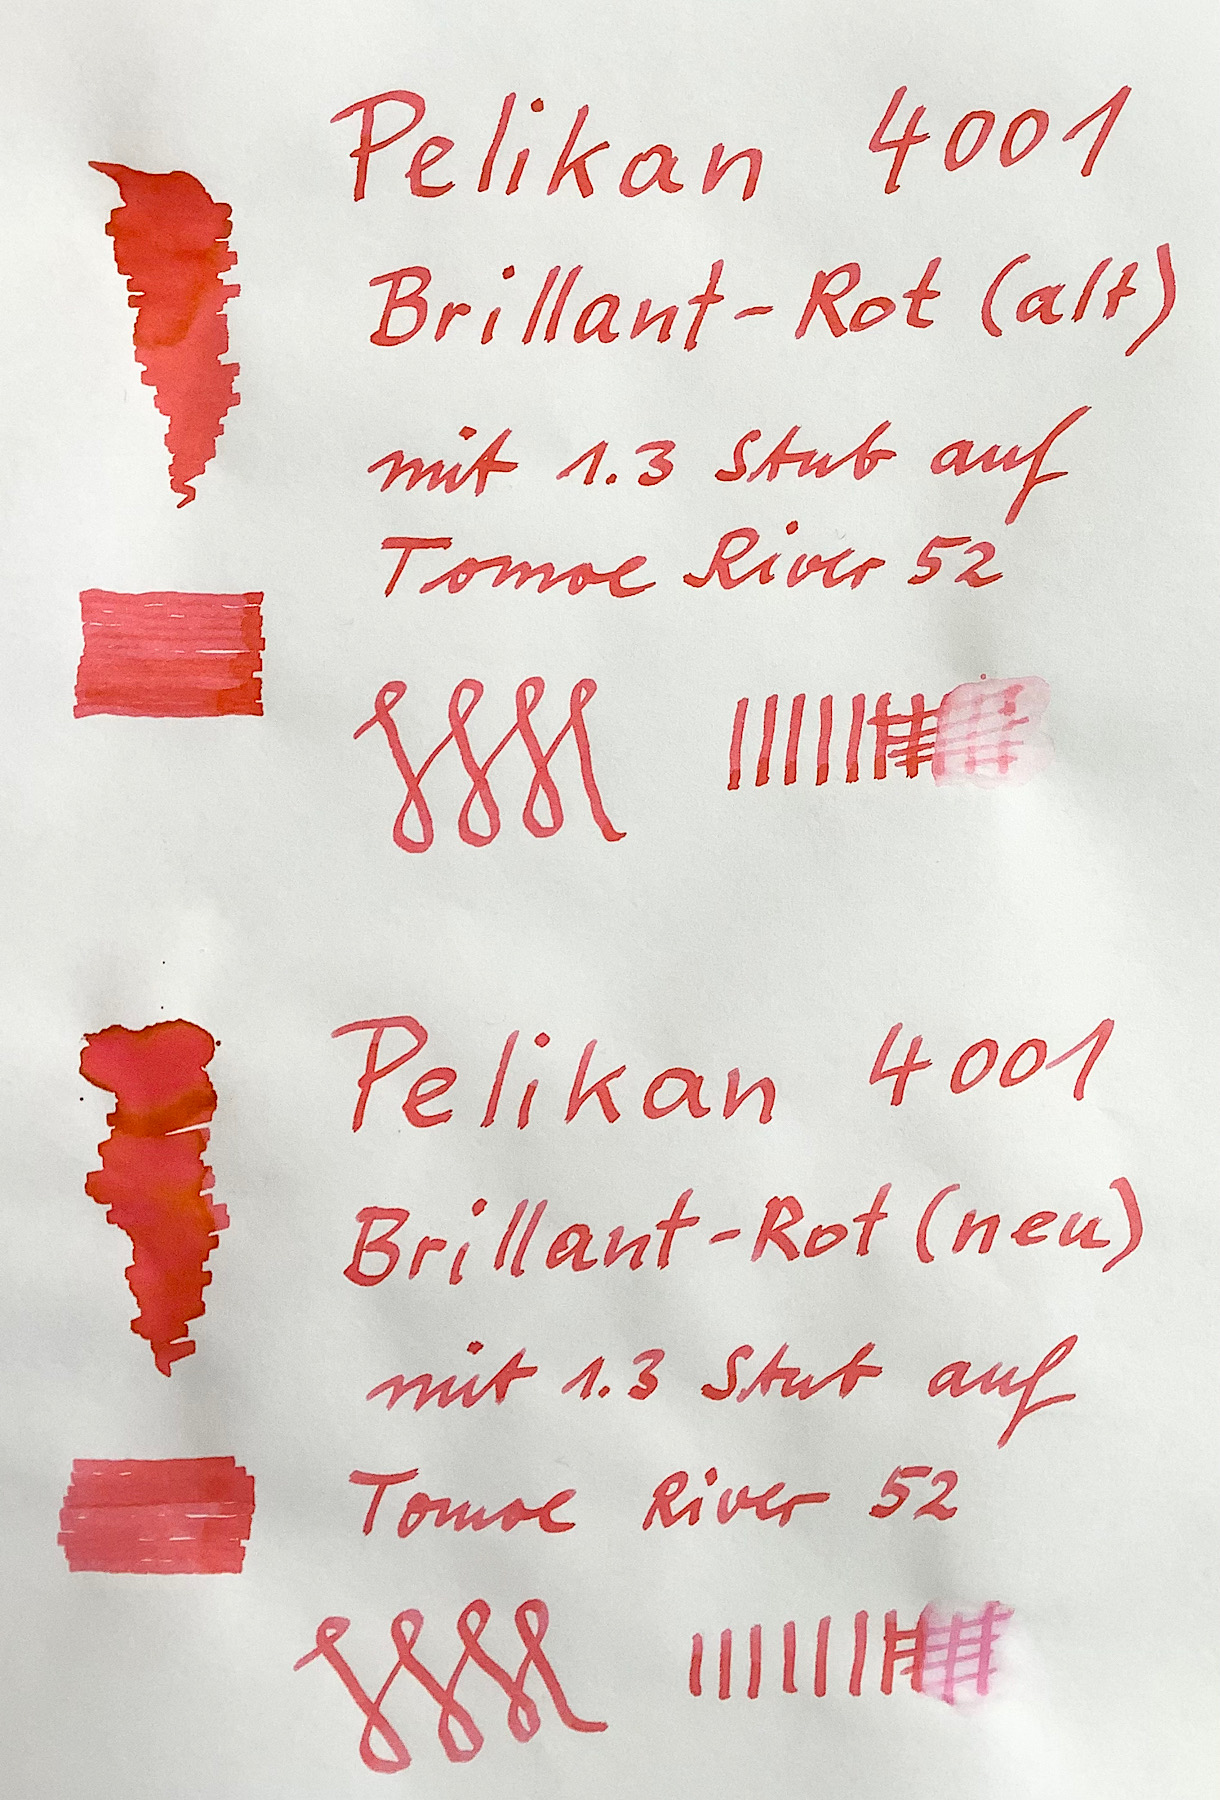 Pelikan 4001
Brillant-Rot (alt)
mit 1.3 Stub auf
Tomoe River 52
Pelikan 4001
Brillant-Rot (neu)
mit 1.3 Stub auf
Tomoe River 52